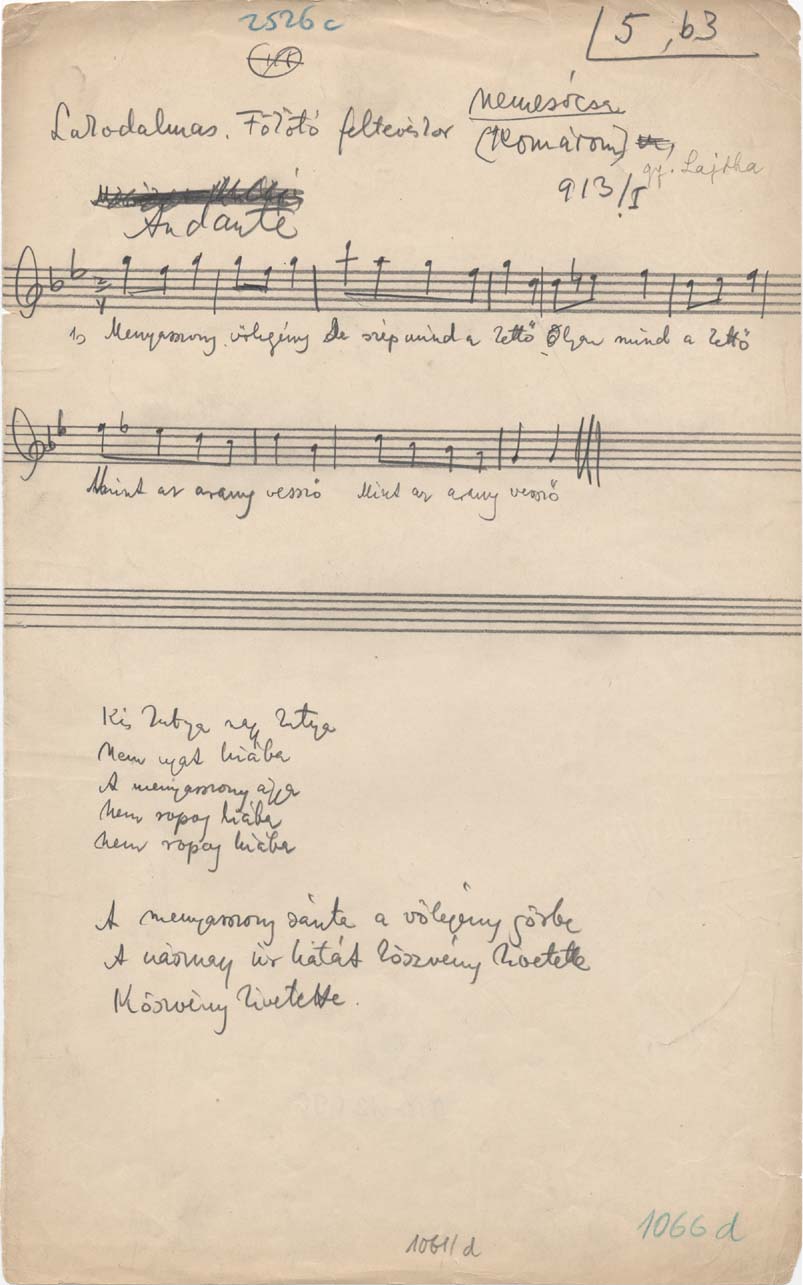 2526c
5, b3
Lakodalmas. Főkötő feltevéskor
Nemesócsa
(Komárom)
gy. Lajtha
913/I
Andante
2/4
1) Menyasszony völegény De szép mind a kettő Olyan mind a kettő
Mint az arany vessző Mint az arany vessző
Kis kutya nagy kutya
Nem ugat hiába
A menyasszony ajja
Nem ropog hiába
Nem ropog hiába
A menyasszony sánta a völegény görbe
A násznagy úr hátát köszvény kivetette
Köszvény kivetette.
1061/d
1066 d